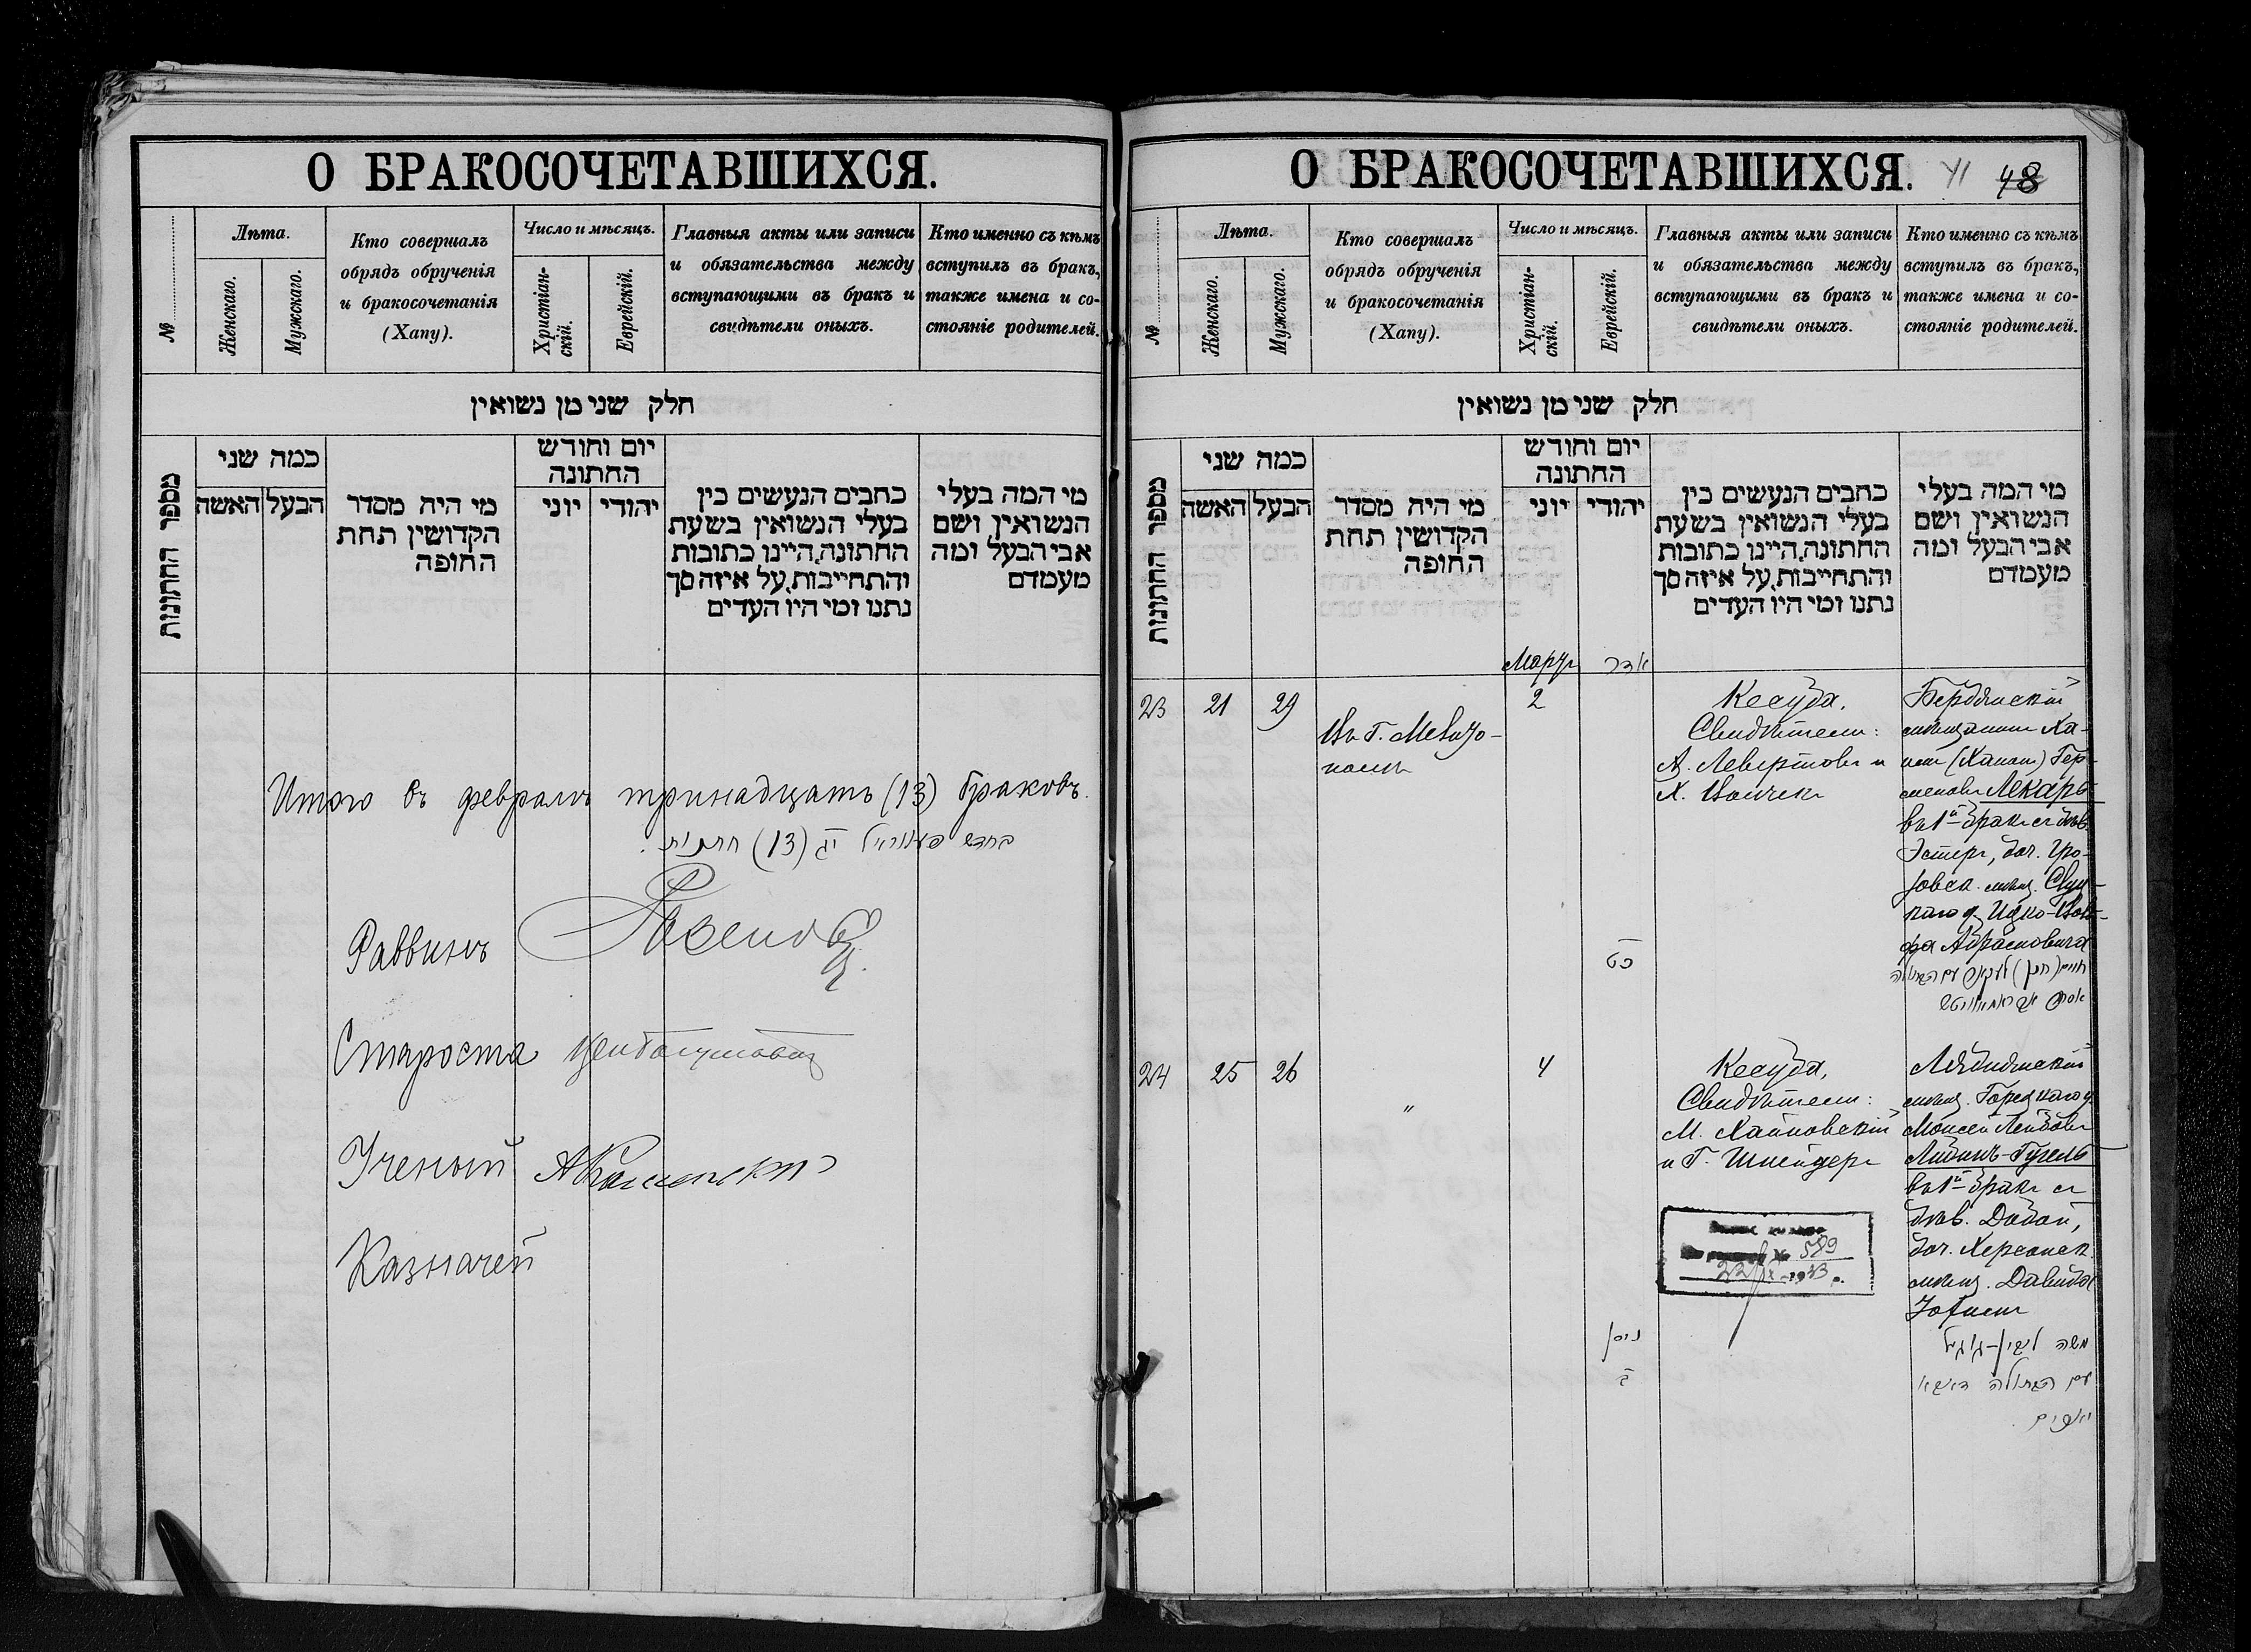 О БРАКОСОЧЕТАВШИХСЯ.
№
Лѣта.
Женскаго.
Мужскаго.
Кто совершалъ
обрядъ обрученія
и бракосочетанія
(Хапу).
Число и мѣсяцъ.
Христіан-
скій.
Еврейскій.
Главныя акты или записи
и обязательства между
вступающими въ бракъ и
свидѣтели оныхъ.
Кто именно съ кѣмъ
вступилъ въ бракъ,
также имена и со-
стояніе родителей.
חלק שני מן נשואין
מספר החתונות
כמה שני
האשה
הבעל
מי היה מסדר
הקדושין תחת
החופה
יום וחודש
החתונה
יוני
יהודי
כתבים הנעשים בין
בעלי הנשואין בשעת
החתונה, היינו כתובות
והתחייבות, על איזה סך
נתנו ומי היו העדים
מי המה בעלי
הנשואין ושם
אבי הבעל ומה
מעמדם
Итого въ февралѣ тринадцать (13) браковъ.
בחדש פעווראיל יג (13) חתונות.
Раввинъ
Староста
Ученый
Казначей
О БРАКОСОЧЕТАВШИХСЯ.
41 48
№
Лѣта.
Женскаго.
Мужскаго.
Кто совершалъ
обрядъ обрученія
и бракосочетанія
(Хапу).
Число и мѣсяцъ.
Христіан-
скій.
Еврейскій.
Главныя акты или записи
и обязательства между
вступающими въ бракъ и
свидѣтели оныхъ.
Кто именно съ кѣмъ
вступилъ въ бракъ,
также имена и со-
стояніе родителей.
חלק שני מן נשואין
מספר החתונות
כמה שני
האשה
הבעל
מי היה מסדר
הקדושין תחת
החופה
יום וחודש
החתונה
יוני
יהודי
כתבים הנעשים בין
בעלי הנשואין בשעת
החתונה, היינו כתובות
והתחייבות, על איזה סך
נתנו ומי היו העדים
מי המה בעלי
הנשואין ושם
אבי הבעל ומה
מעמדם
Мартъ
אדר
23
21
29
Въ г. Мелито-
полѣ
2
כט
Кесуба,
Свидѣтели:
А. Левертовъ и
Х. Волчекъ
Бердянскій
мѣщанинъ Ха-
имъ (Ханан) Гер-
шеновъ Лекарь
въ 1й бракъ съ дѣв.
Эстеръ, доч.
мѣщ.
Ицко-Воль-
фа Абрамовича
24
25
26
"
4
ניסן
ב
Кесуба,
Свидѣтели:
М. Хайновскій
и Г. Шнейдеръ
589
22/IX-1943 г.
мѣщ.
Моисей Лейбовъ
Либинъ-Гугель
въ 1й бракъ съ
дѣв. Добой,
доч. Херсонск.
мѣщ. Давида
משה ליבין-גוגיל
עם הבתולה דאבא